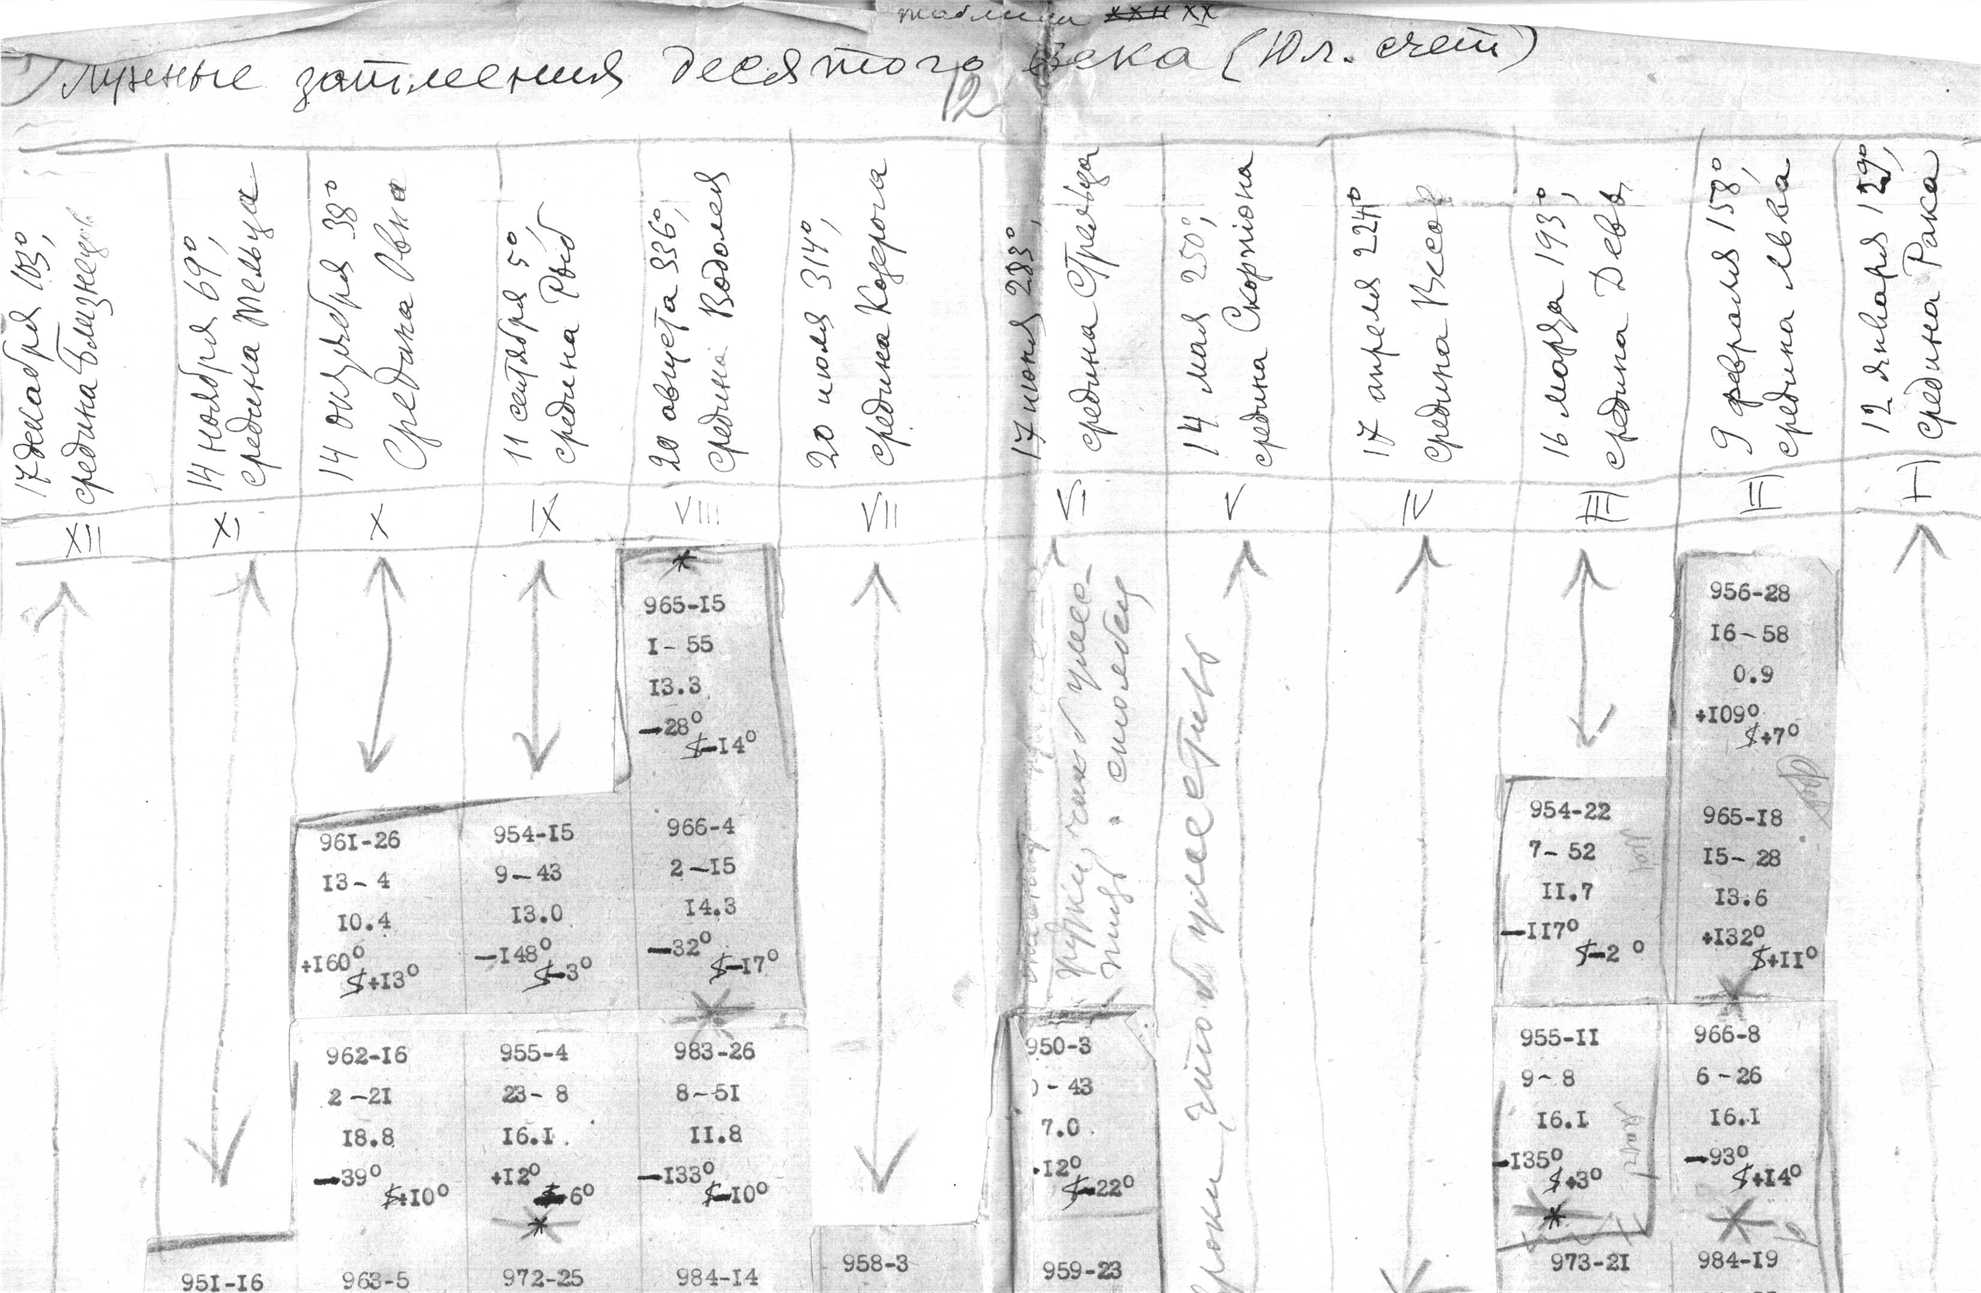 таблица XX
Лунные затмения десятого века (Юл. счет)
12
17 декабря 103°,
средина Близнецов
14 ноября 69°,
средина Тельца
14 октября 38°
Средина Овна
11 сентября 5°,
средина Рыб
20 августа 336°,
средина Водолея
20 июля 314°,
средина Козерога
17 июня 283°,
средина Стрельца
14 мая 250°,
средина Скорпиона
17 апреля 224°
средина Весов
16 марта 193°,
средина Девы
9 февраля 158°,
средина Льва
12 января 129°,
средина Рака
XII
XI
X
IX
VIII
VII
VI
V
IV
III
II
I
*
965-I5
I- 55
I3.3
-28°
$-I4°
956-28
I6-58
0.9
+I09°
$+7°
96I-26
I3-4
I0.4
+I60°
$+I3°
954-I5
9-43
I3.0
-I48°
$-3°
966-4
2-I5
I4.3
-32°
$-I7°
*
954-22
7- 52
II.7
-II7°
$-2°
965-I8
I5-28
I3.6
+I32°
$+II°
*
962-I6
2-2I
I8.8
-39°
$+I0°
955-4
23- 8
I6.I
+I2°
$-6°
*
983-26
8-5I
II.8
-I33°
$-I0°
950-3
- 43
7.0
I2°
$-22°
955-II
9- 8
I6.I
-I35°
$+3°
*
966-8
6 -26
I6.I
-93°
$+I4°
*
чтоб уместить
95I-I6
963-5
972-25
984-I4
958-3
959-23
973-2I
984-I9